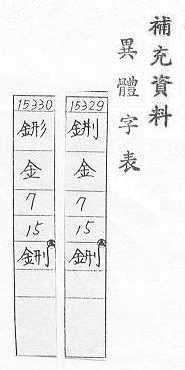 補充資料
異體字表
15329
金
7
15
鉶
15330
金
7
15
鉶